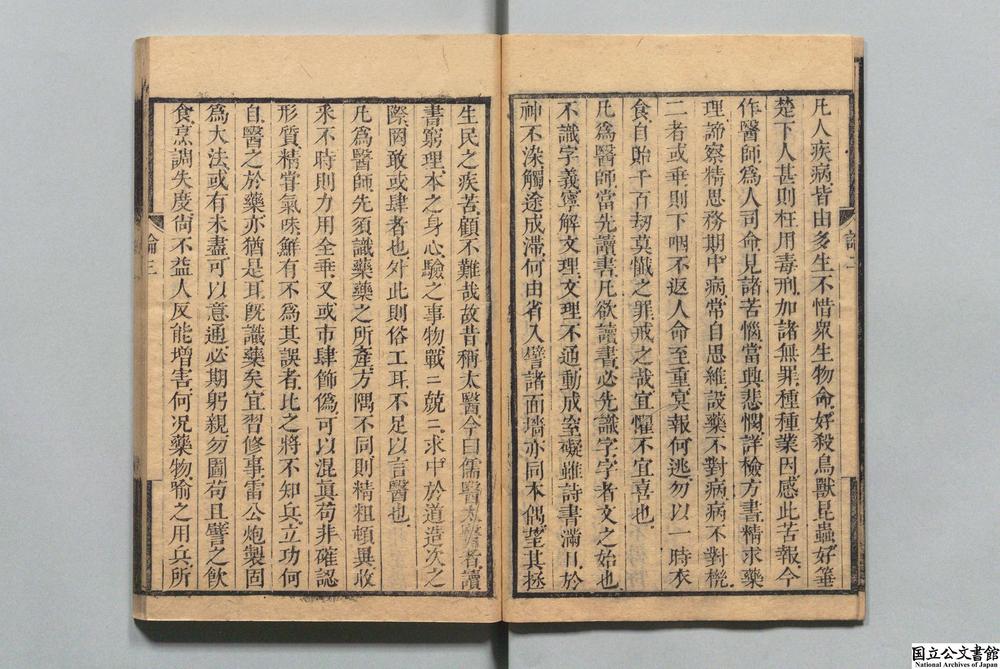 凡人疾病皆由多生不惜衆生物命好殺鳥獸昆蟲好箠
楚下人甚則枉用毒刑加諸無罪種種業因感此苦報今
作醫師爲人司命見諸苦惱當興悲憫詳檢方書精求藥
理諦察精思務期中病常自思維設藥不對病病不對機
二者或乖則下咽不返人命至重冥報何逃勿以一時衣
食自貽千百劫莫懺之罪戒之哉宜懼不宜喜也
凡爲醫師當先讀書凡欲讀書必先識字字者文之始也
不識字義寧解文理文理不通動成窒礙雖詩書滿目於
神不染觸途成滯何由省入譬諸面墻亦同木偶望其拯
生民之疾苦顧不難哉故昔稱太醫今曰儒醫太醫者讀
書窮理本之身心驗之事物戰二兢二求中於道造次之
際罔敢或肆者也外此則俗工耳不足以言醫也
凡爲醫師先須識藥藥之所產方隅不同則精粗頓異收
采不時則力用全乖又或市肆飾僞可以混眞苟非確認
形質精嘗氣味鮮有不爲其誤者比之將不知兵立功何
自醫之於藥亦猶是耳旣識藥矣宜習修事雷公炮製固
爲大法或有未盡可以意通必期躬親勿圖苟且譬之飲
食烹調失度尙不益人反能增害何况藥物喻之用兵所
論三
國立公文書館
National Archives of Japan